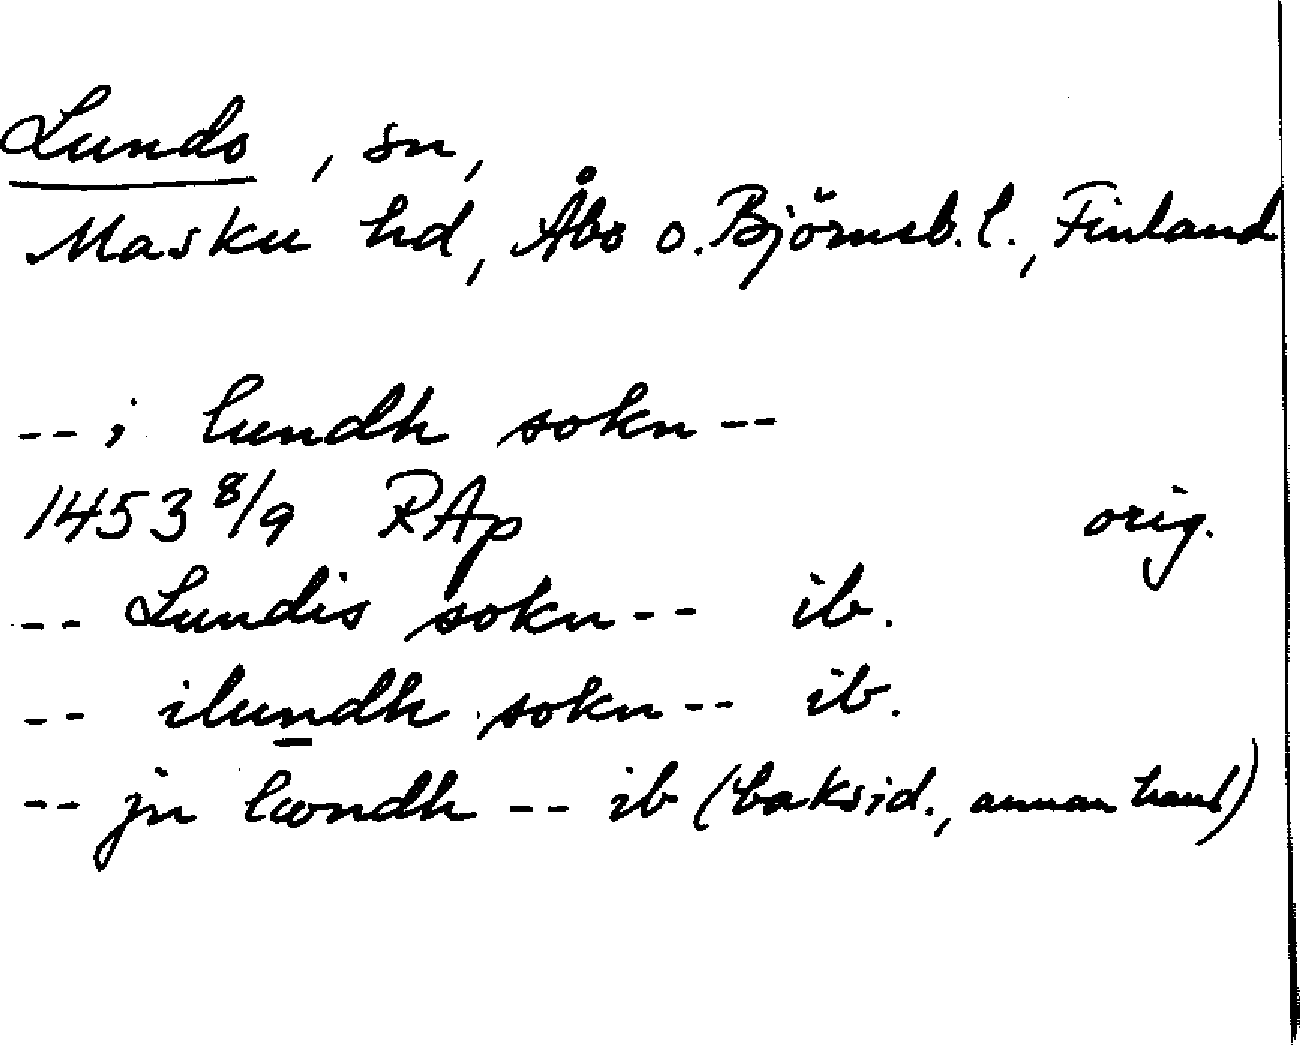 Lundo, sn,
Masku hd, Åbo o. Björneb. l., Finland
-- i lundh sokn --
1453 8/9 RAp orig.
-- Lundis sokn -- ib.
-- ilundh sokn -- ib.
-- jn lwndh -- ib (baksid., annan hand)